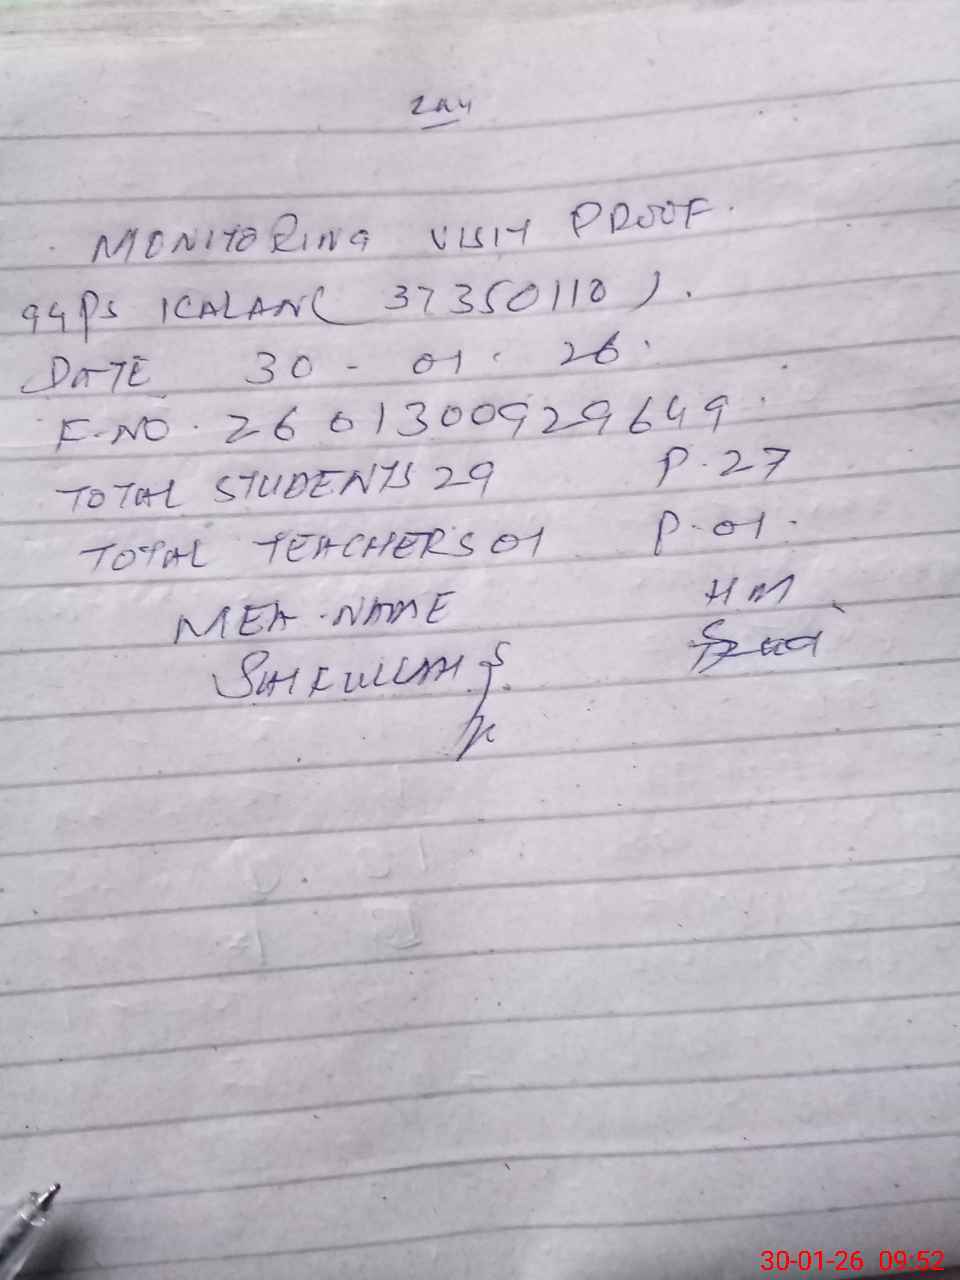 MONITORING VISIT PROOF.
GGPS KALAN( 37350110 ).
DATE 30 - 01. 26.
F.NO. 2601300929649
TOTAL STUDENTS 29 P.27
TOTAL TEACHERS 01 P.01.
MEA.NAME HM
30-01-26 09:52